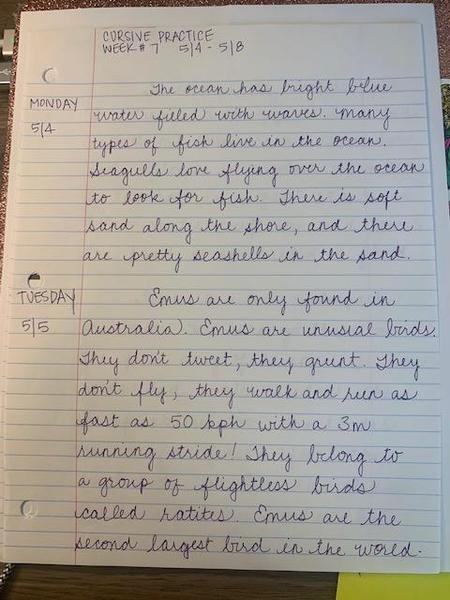 CURSIVE PRACTICE
WEEK # 7 5/4 - 5/8
MONDAY
5/4
The ocean has bright blue
water filled with waves. Many
types of fish live in the ocean.
Seagulls love flying over the ocean
to look for fish. There is soft
sand along the shore, and there
are pretty seashells in the sand.
TUESDAY
5/5
Emus are only found in
Australia. Emus are unusual birds.
They don't tweet, they grunt. They
don't fly, they walk and run as
fast as 50 kph with a 3m
running stride! They belong to
a group of flightless birds
called ratites. Emus are the
second largest bird in the world.